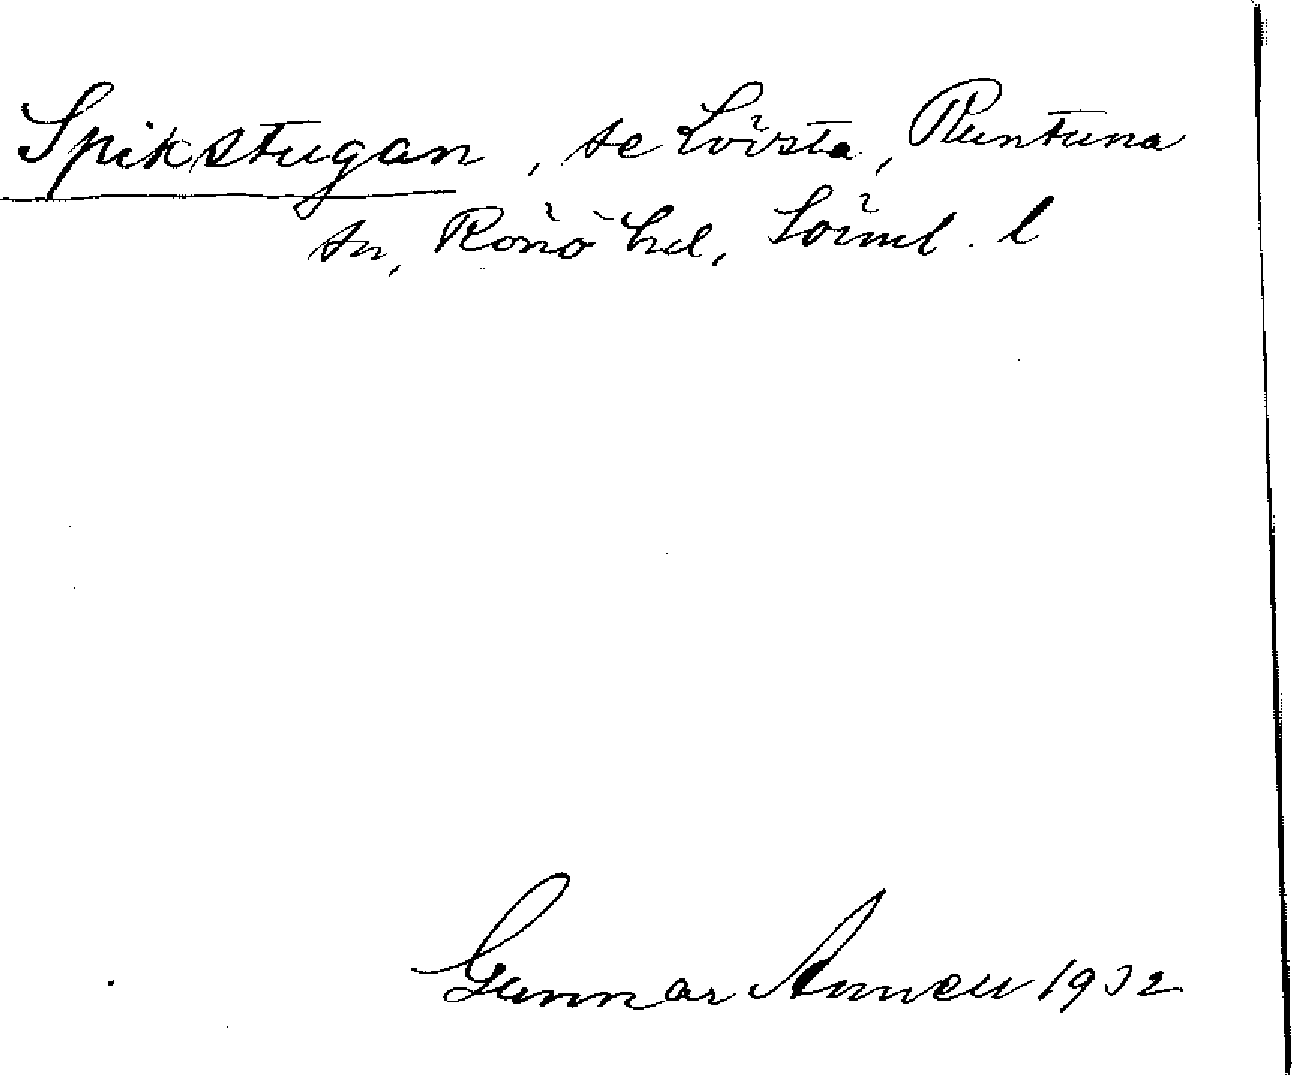 Spikstugan, se Lövsta, Runtuna
sn, Rönö hd, Sörml. l
Gunnar 1932